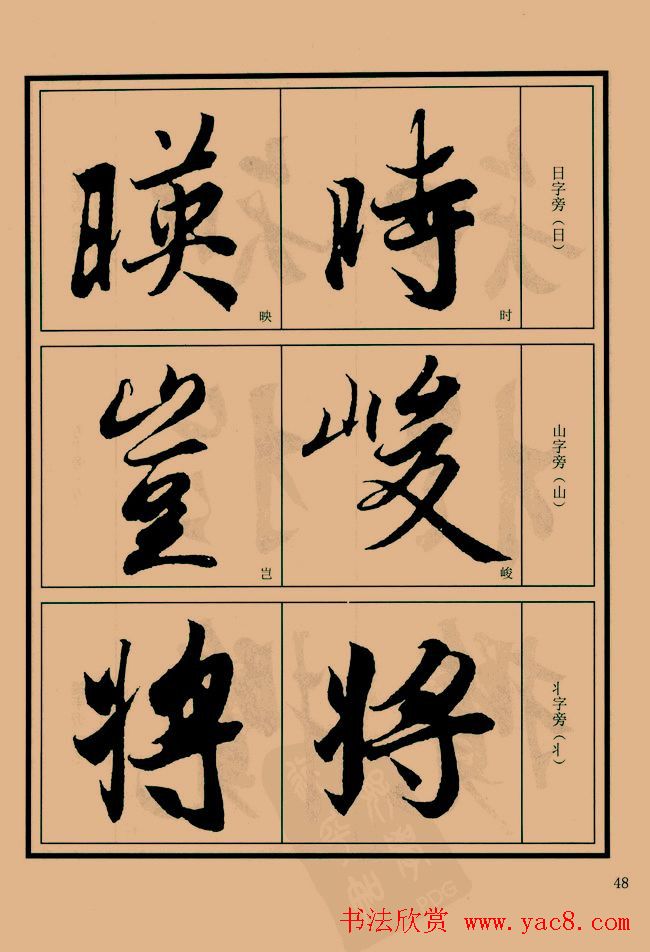 日字旁（日）
時
时
暎
映
山字旁（山）
峻
峻
豈
岂
丬字旁（丬）
将
将
48
书法欣赏 www.yac8.com
PDG